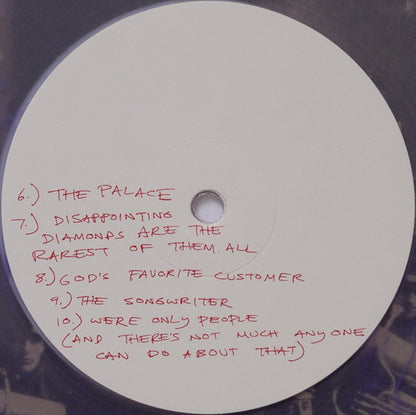 6.) THE PALACE
7.) DISAPPOINTING
DIAMONDS ARE THE
RAREST OF THEM ALL
8.) GOD'S FAVORITE CUSTOMER
9.) THE SONGWRITER
10.) WERE ONLY PEOPLE
(AND THERE'S NOT MUCH ANYONE
CAN DO ABOUT THAT)